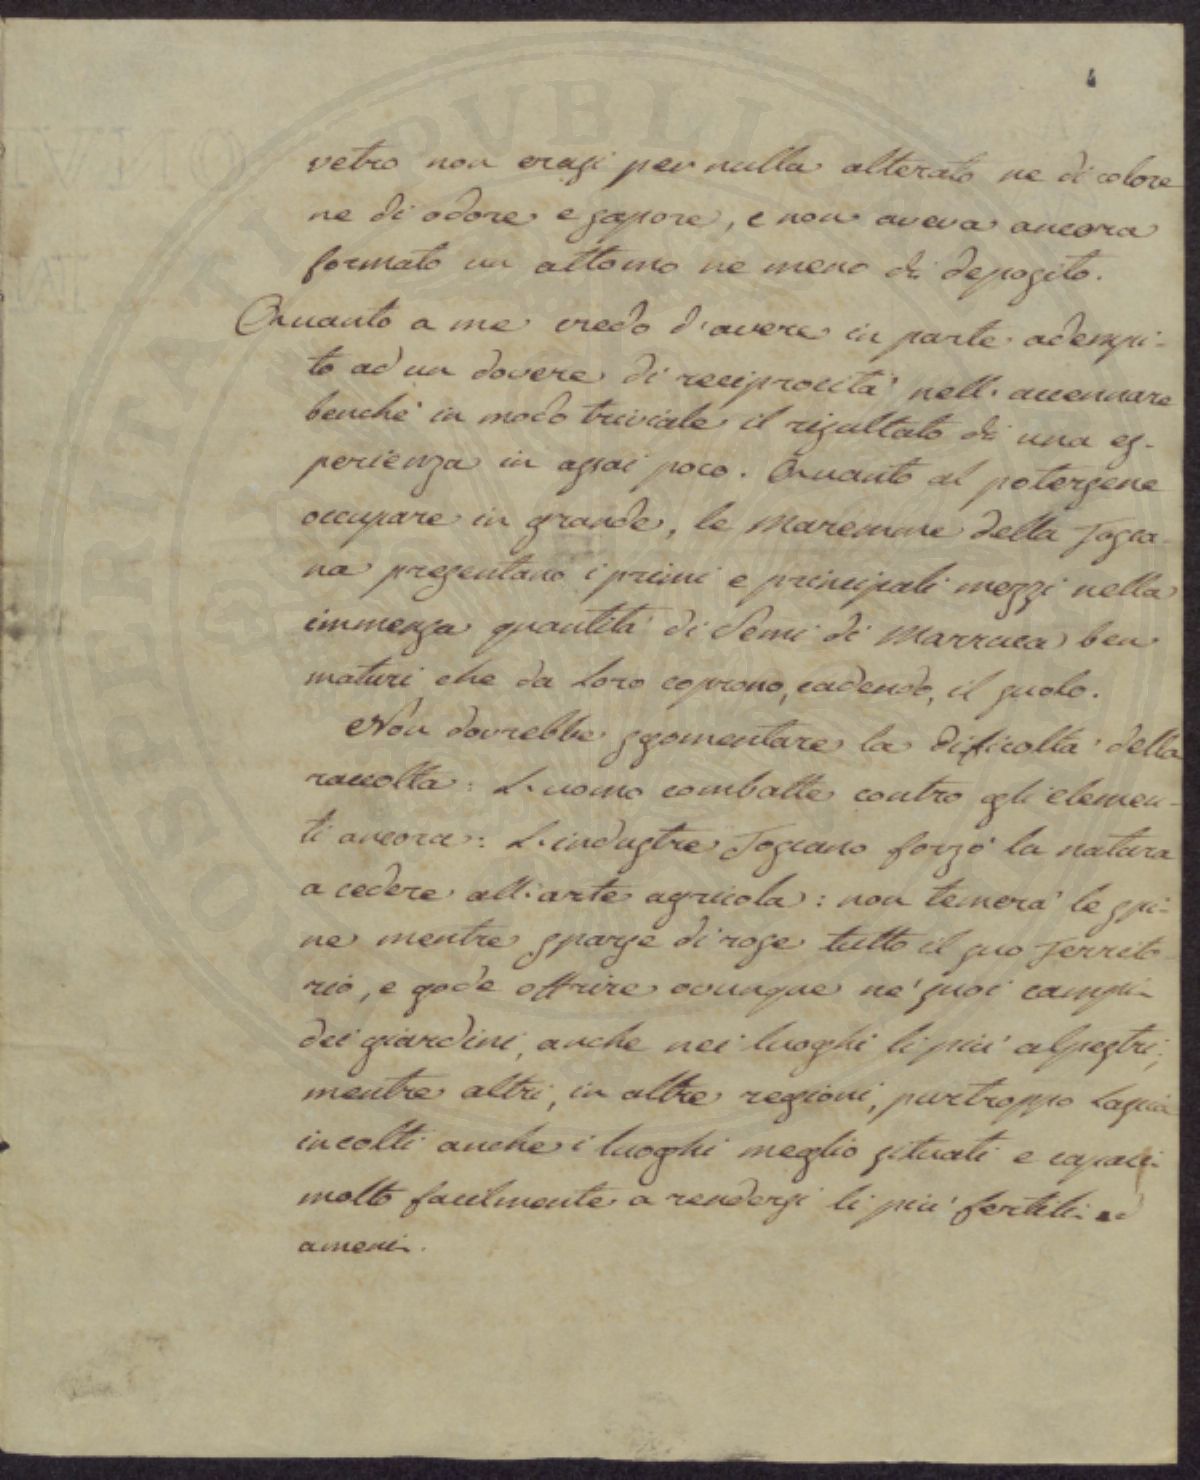 4
vetro non erasi per nulla alterato ne di colore
ne di odore e sapore, e non aveva ancora
formato un attomo ne meno di deposito.
Quanto a me credo d'avere in parte adempi-
to ad un dovere di reciprocità nell'accennare
benchè in modo triviale il risultato di una es-
perienza in assai poco. Quanto al potersene
occupare in grande, le Maremme della Tosca-
na presentano i primi e principali mezzi nella
immensa quantità di Semi di Marruca ben
maturi che da loro coprono, cadendo, il suolo.
Non dovrebbe sgomentare la dificoltà della
raccolta: L'uomo combatte contro gli elemen-
ti ancora: L'industre Toscano forzò la natura
a cedere all'arte agricola: non temerà le spi-
ne mentre sparse di rose tutto il suo Territo-
rio, e gode offrire ovunque ne' suoi campi
dei giardini, anche nei luoghi li più alpestri;
mentre altri, in altre regioni, purtroppo Lascia
incolti anche i luoghi meglio situati e capaci
molto facilmente a rendersi li più fertili ed
ameni.
PVBLIC